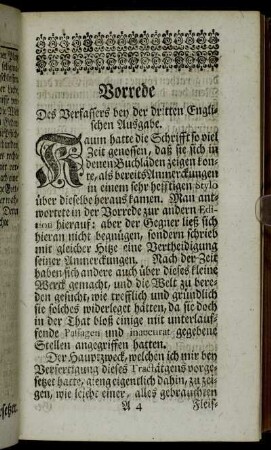 Vorrede
Des Verfassers bey der dritten Engli-
schen Ausgabe.
Kaum hatte die Schrifft so viel
Zeit genossen, daß sie sich in
denen Buchläden zeigen kon-
te, als bereits Anmerckungen
in einem sehr hefftigen Stylo
über dieselbe heraus kamen. Man ant-
wortete in der Vorrede zur andern Edi-
tion hierauf: aber der Gegner ließ sich
hieran nicht begnügen, sondern schrieb
mit gleicher Hitze eine Vertheidigung
seiner Anmerckungen. Nach der Zeit
haben sich andere auch über dieses kleine
Werck gemacht, und die Welt zu bere-
den gesucht, wie trefflich und gründlich
sie solches widerleget hätten, da sie doch
in der That bloß einige mit unterlauf-
fende Passagen und inaccurat gegebene
Stellen angegriffen hatten.
Der Hauptzweck, welchen ich mir bey
Verfertigung dieses Tractätgens vorge-
setzet hatte, gieng eigentlich dahin, zu zei-
gen, wie leichte einer, alles gebrauchten
A 4 Fleis-